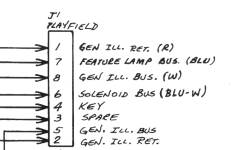 J1
PLAYFIELD
1 GEN ILL. RET. (R)
7 FEATURE LAMP BUS. (BLU)
8 GEN ILL. BUS. (W)
6 SOLENOID BUS (BLU-W)
4 KEY
3 SPARE
5 GEN. ILL. BUS
2 GEN. ILL. RET.